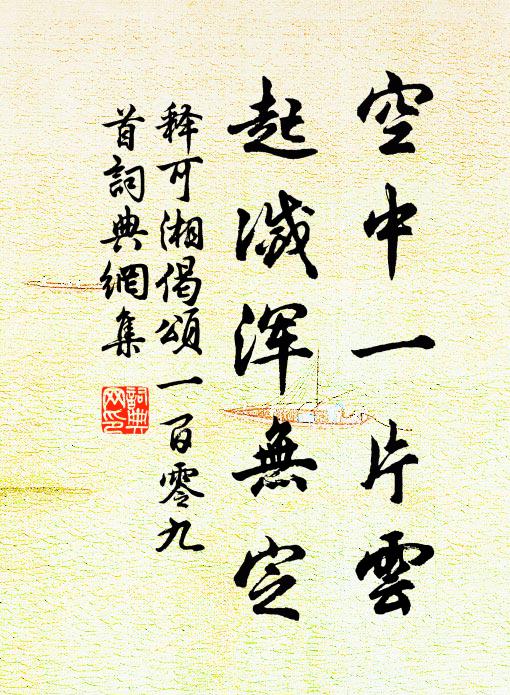 空中一片雲
起滅浑無定
释可湘偈頌一百零九
首詞典網集
詞典
网印